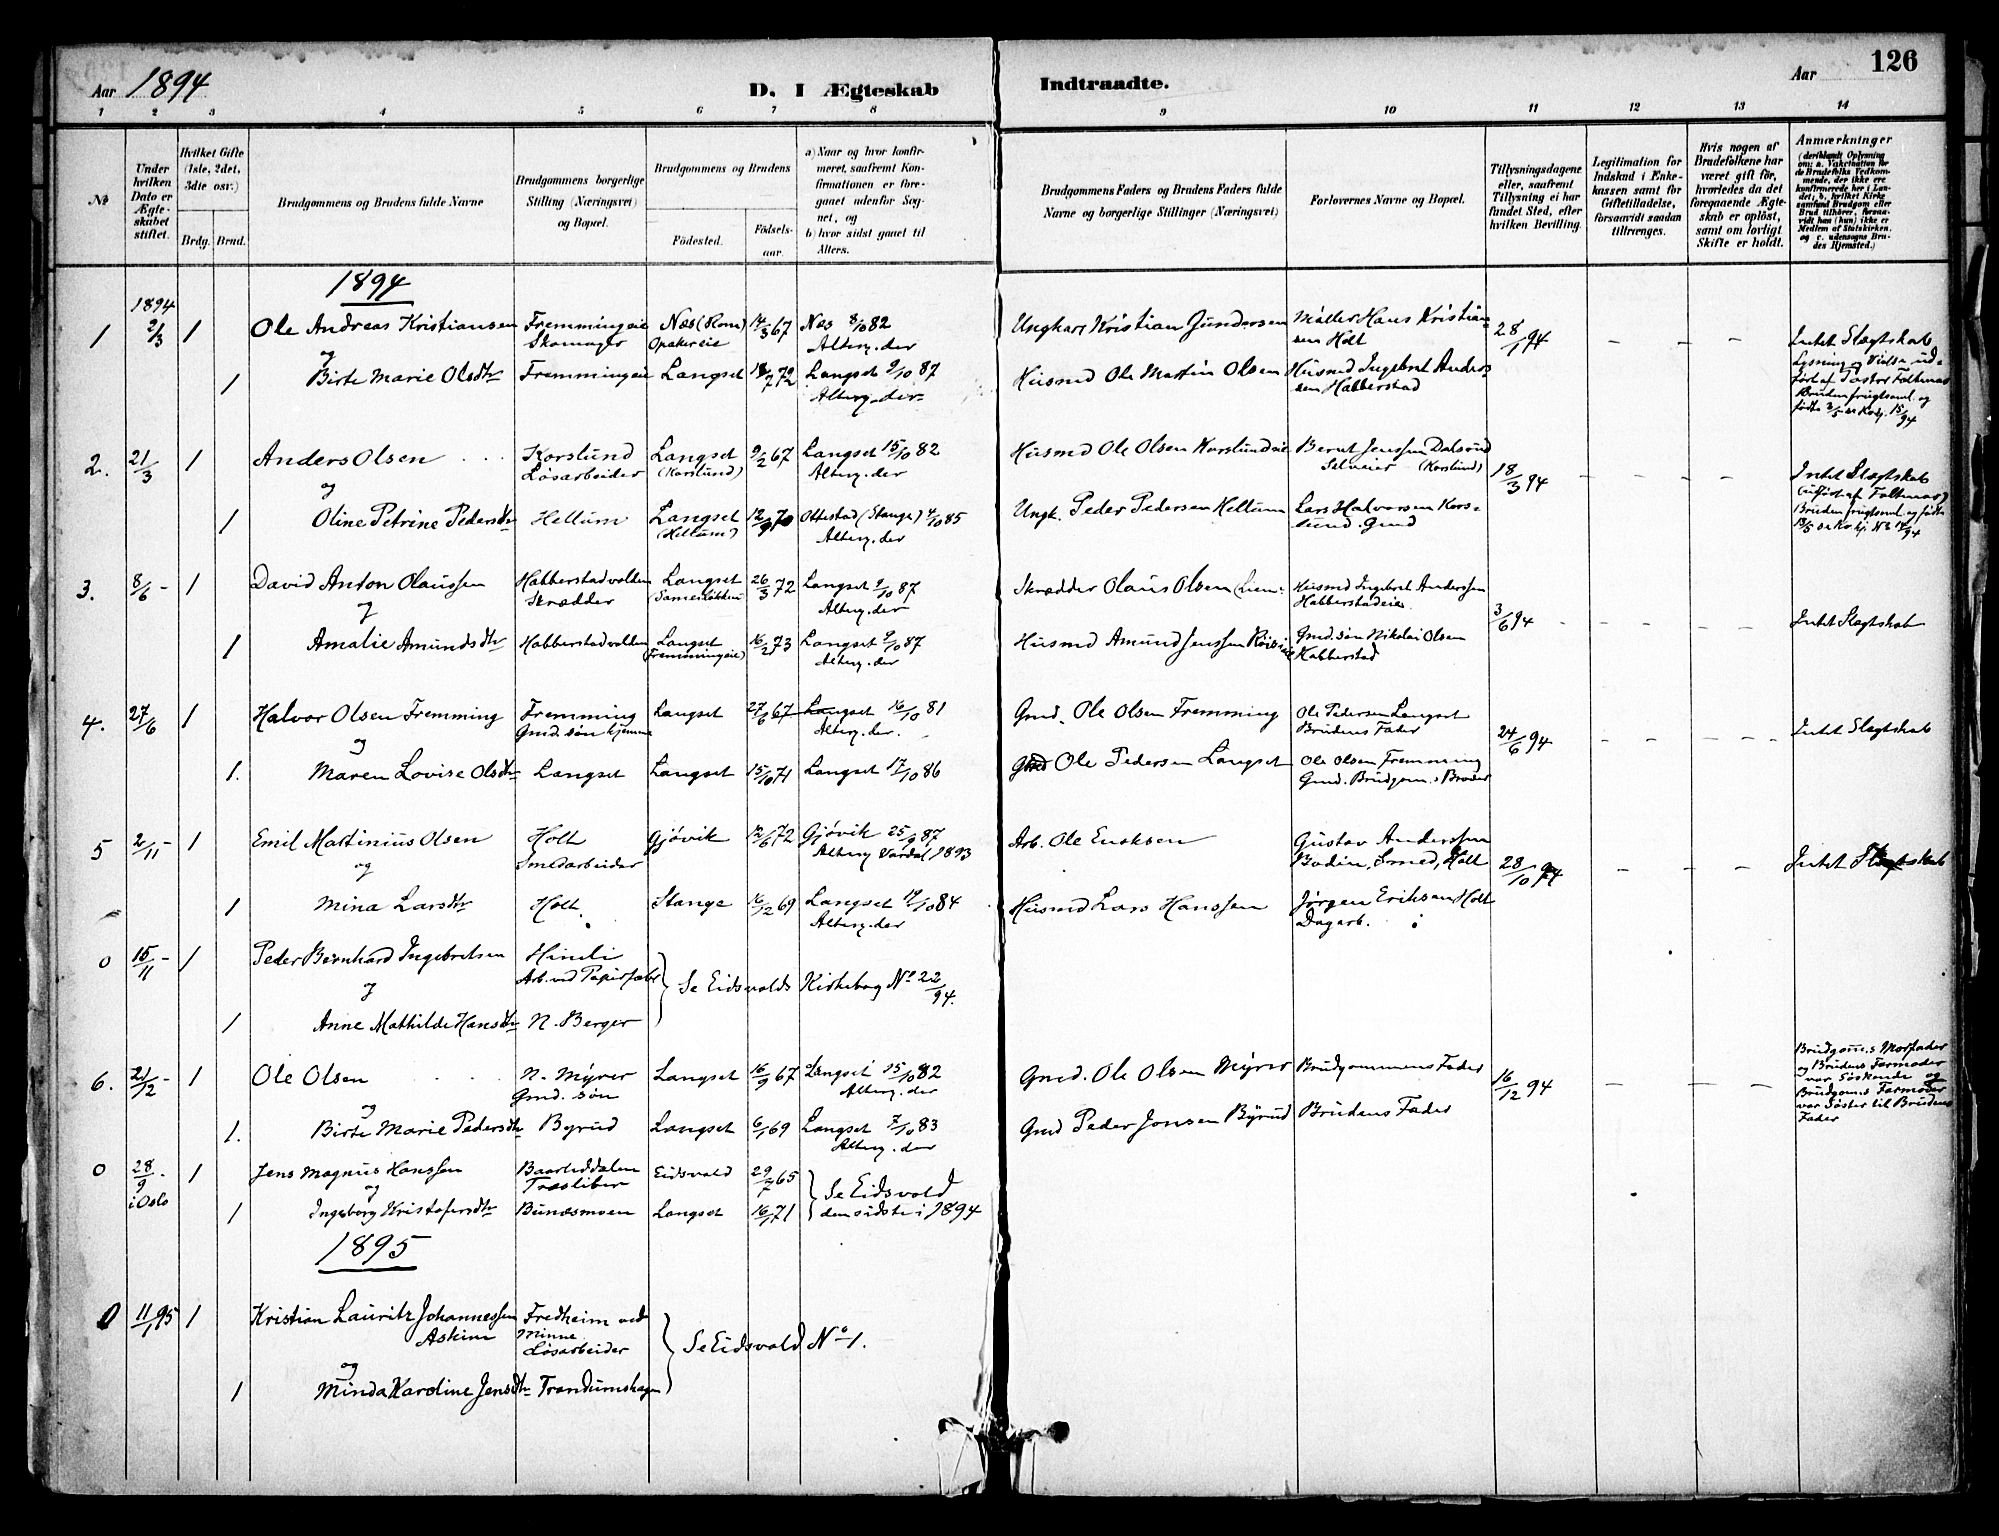 126
Aar 1894
D. I Ægteskab Indtraadte.
Aar
1 2 3 4 5 6 7 8 9 10 11 12 13 14
№
Under hvilken Dato er Ægteskabet stiftet.
Hvilket Gifte (1ste, 2det, 3die osv.)
Brdg. Brud.
Brudgommens og Brudens fulde Navne
Brudgommens borgerlige Stilling (Næringsvei) og Bopæl.
Brudgommens og Brudens
Fødested.
Fødselsaar.
a) Naar og hvor konfirmeret, saafremt Konfirmationen er foregaaet udenfor Sognet, og
b) hvor sidst gaaet til Alters.
Brudgommens Faders og Brudens Faders fulde Navne og borgerlige Stillinger (Næringsvei)
Forlovernes Navne og Bopæl.
Tillysningsdagene eller, saafremt Tillysning ei har fundet Sted, efter hvilken Bevilling.
Legitimation for Indskud i Enkekassen samt for Giftetilladelse, forsaavidt saadan tiltrænges.
Hvis nogen af Brudefolkene har været gift før, hvorledes da det foregaaende Ægteskab er opløst, samt om lovligt Skifte er holdt.
Anmærkninger
(deriblandt Oplysning om: a. Vakcination for de Brudefolks Vedkommende, der ikke ere konfirmerede her i Landet; b. hvilket Kirkesamfund Brudgom eller Brud tilhører, forsaavidt han (hun) ikke er Medlem af Statskirken, og c. udensogns Brudes Hjemsted.)
1894
1894
1 2/3 1 Ole Andreas Kristiansen Fremmingeie Næs (Rom) 14/3 67 Næs 8/10 82 Ungkarl Kristian Gundersen Møller Hans Kristian-
og Skomager Opakereie Alterg. der sen Holt 28/1 94 – – – Intet Slægtskab
1 Birte Marie Olsdtr Fremmingeie Langset 18/2 72 Langset 9/10 87 Husmd Ole Martin Olsen Husmd Ingebret Anders- Lysning og Vielse ud-
Alterg. der sen Habberstad ført af Pastor Foltmar
Bruden frugtsoml. og
født 2/5 se Kvk. 15/94
2. 21/3 1 Anders Olsen Korslund Langset 9/2 67 Langset 15/10 82 Husmd Ole Olsen Korslundeie Bernt Jenssen Dalsrud
og Løsarbeider (Korslund) Alterg. der Selveier (Korslund) 18/3 94 – – – Intet Slægtskab
1 Oline Petrine Pedersdtr Hellum Langset 12/9 70 Ottestad (Stange) 4/10 85 Ungk. Peder Pedersen Hellum Lars Halvorsen Kors- (udført af Foltmar)
(Hellum) Alterg. der lund. Gmd Bruden frugtsoml. og født
3. 8/6 – 1 David Anton Olaussen Habberstadvolden Langset 26/3 72 Langset 9/10 87 Skrædder Olaus Olsen Husmd Ingebret Anderssen
og Skrædder Alterg. der Habberstadeie 3/6 94 – – – Intet Slægtskab
1 Amalie Amundsdtr Habberstadvolden Langset 16/2 73 Langset 9/10 87 Husmd Amund Jenssen Gmd. søn Nikolai Olsen
(Fremmingeie) Alterg. der Habberstad
4. 27/6 1 Halvor Olsen Fremming Fremming Langset 27/6 67 Langset 16/10 81 Gmd. Ole Olsen Fremming Ole Pedersen Langset
og Gmd. søn hjemme Alterg. der. Brudens Fader 24/6 94 – – – Intet Slægtskab
1. Maren Lovise Olsdtr Langset Langset 15/10 71 Langset 17/10 86 Gmd Ole Pedersen Langset Ole Olsen Fremming
Gmd. Brudgom.s Broder
5 2/11 – 1 Emil Martinius Olsen Holt Gjøvik 12/6 72 Gjøvik 25/9 87 Arb. Ole Eriksen Gustav Anderssen
og Smedarbeider Alterg. Vardal 1893 Bodin, Smed, Holt 28/10 94 – – – Intet Slægtskab
1 Mina Larsdtr Holt. Stange 16/12 69 Langset 19/10 84 Husmd Lars Hanssen Jørgen Eriksen Holt
Alterg. der Dagarb.
0 15/11 – 1 Peder Bernhard Ingebretsen Himli
og Arb. ved Papirfabr. Se Eidsvolds Kirkebog No 22/94.
1 Anne Mathilde Hansdtr N. Berger
6. 21/12 – 1 Ole Olsen N. Myrer Langset 16/9 67 Langset 15/10 82 Gmd. Ole Olsen Myrer Brudgommens Fader 16/12 94 – – – Brudgom.s Morfader
og Gmd. søn Alterg. der og Brudens Farmoder
1. Birte Marie Pedersdtr Byrud Langset 6/1 69 Langset 7/10 83 Gmd Peder Jonsen Byrud Brudens Fader var Søskende og
Alterg. der Brudgom.s Farmoder
var Søster til Brudens
Fader
0 28/9 . 1 Jens Magnus Hanssen Eidsvold 29/7 65
i Oslo og Se Eidsvold
1 Ingeborg Kristofersdtr Bunæsmoen Langset 16/1 71 den sidste i 1894
1895
0 11/1 95 1 Kristian Lauritz Johannessen Fredheim ved
Askim Minne
og Løsarbeider Se Eidsvold No 1.
1 Minda Karoline Jensdtr Trandumshagen